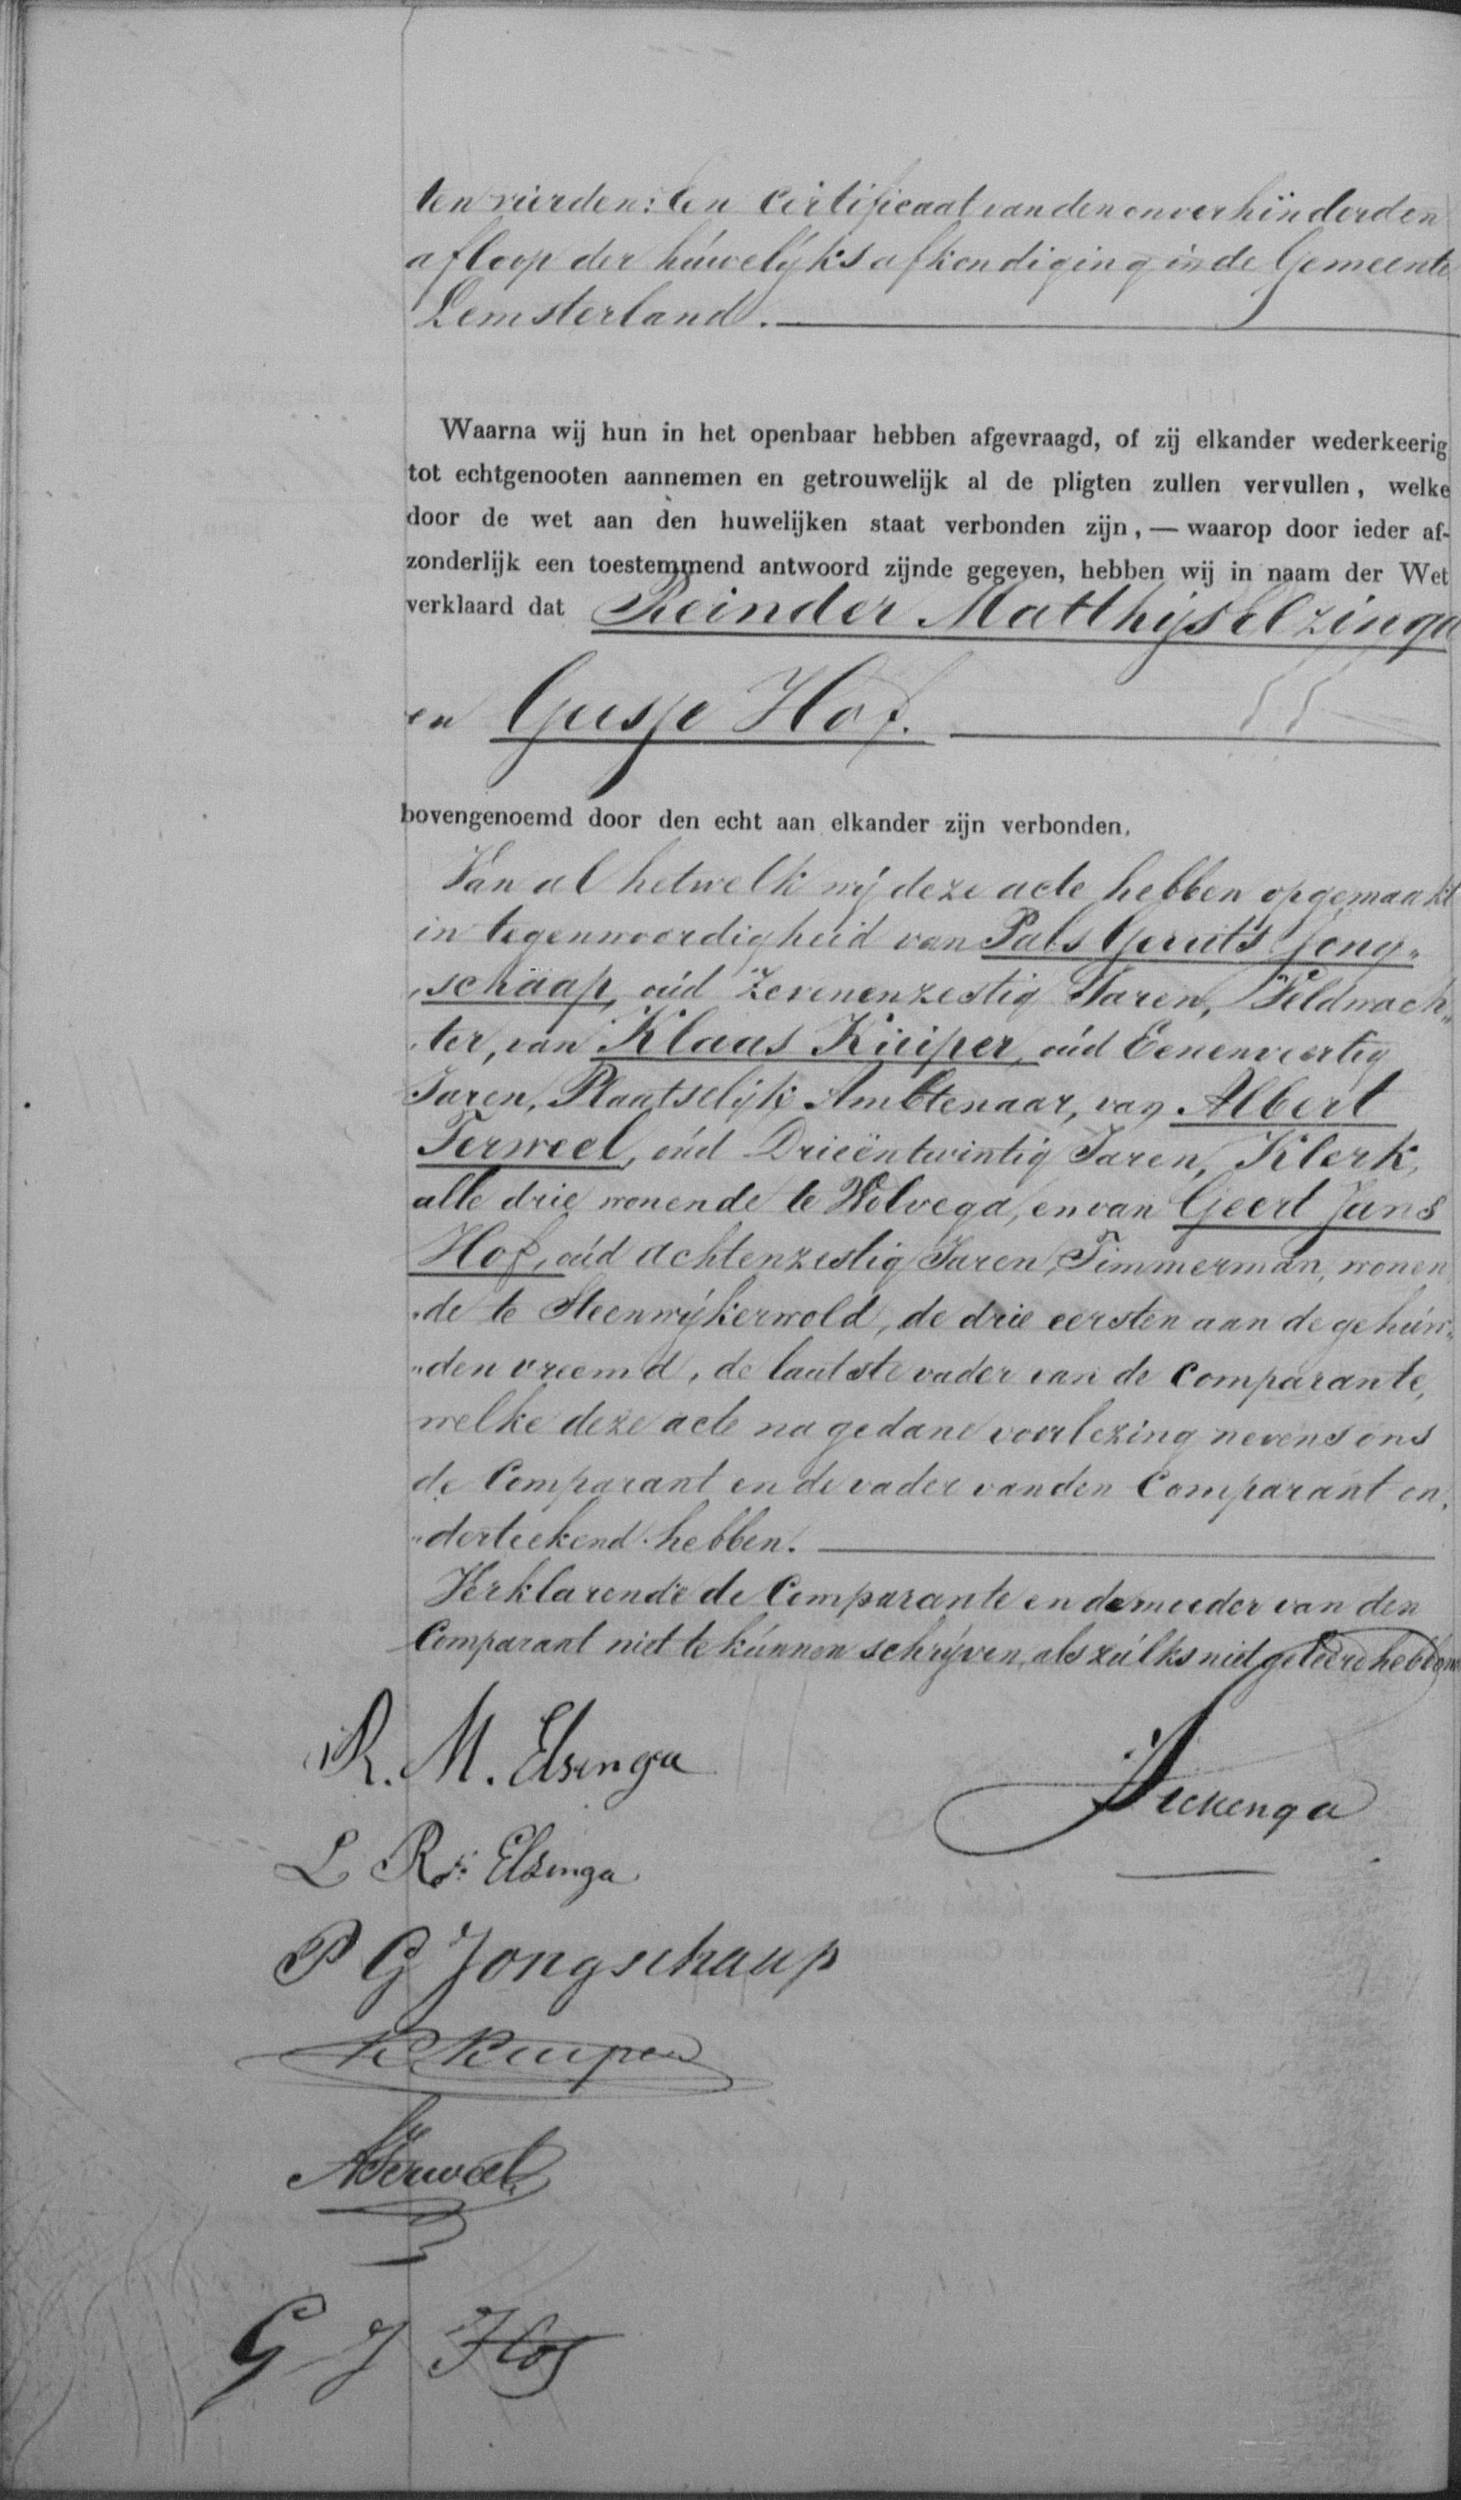 ten vierden: Een Certificaat van den onverhinderden
afloop der huwelijks afkondiging in de Gemeente
Lemsterland.
Waarna wij hun in het openbaar hebben afgevraagd, of zij elkander wederkeerig
tot echtgenooten aannemen en getrouwelijk al de pligten zullen vervullen, welke
door de wet aan den huwelijken staat verbonden zijn, — waarop door ieder af-
zonderlijk een toestemmend antwoord zijnde gegeven, hebben wij in naam der Wet
verklaard dat Reinder Matthijs Elzinga
en Gesje Hof.
bovengenoemd door den echt aan elkander zijn verbonden.
Van al hetwelk wij deze acte hebben opgemaakt
in tegenwoordigheid van Pals Gerrits Jong„
„schaap, oud Zevenenzestig Jaren, Veldwach„
„ter, van Klaas Kuiper, oud Eenenveertig
Jaren, Plaatselijk Ambtenaar, van Albert
Terweel, oud Drieëntwintig Jaren, Klerk,
alle drie wonende te Wolvega, en van Geert Jans
Hof, oud achtenzestig Jaren, Timmerman, wonen
„de te Steenwijkerwold, de drie eersten aan de gehuw„
„den vreemd, de laatste vader van de Comparante,
welke deze acte na gedane voorlezing nevens ons
de Comparant en de vader van den Comparant on„
„derteekend hebben.
Verklarende de Comparante en de moeder van den
Comparant niet te kunnen schrijven, als zulks niet geleerd hebbende
R. M. Elsinga
L Rs. Elzinga
P G Jongschaap
K Kuiper
A Terweel
G J Hof